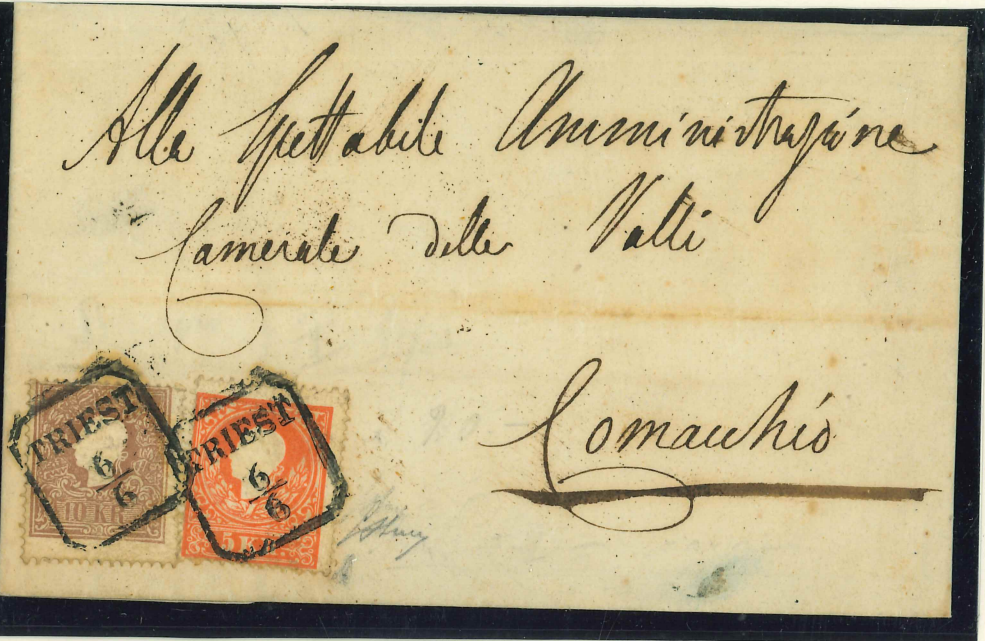 Alla Spettabile Amministrazione
Camerale delle Valli
Comacchio
TRIEST
6/6
10 KR
TRIEST
6/6
5 KR.